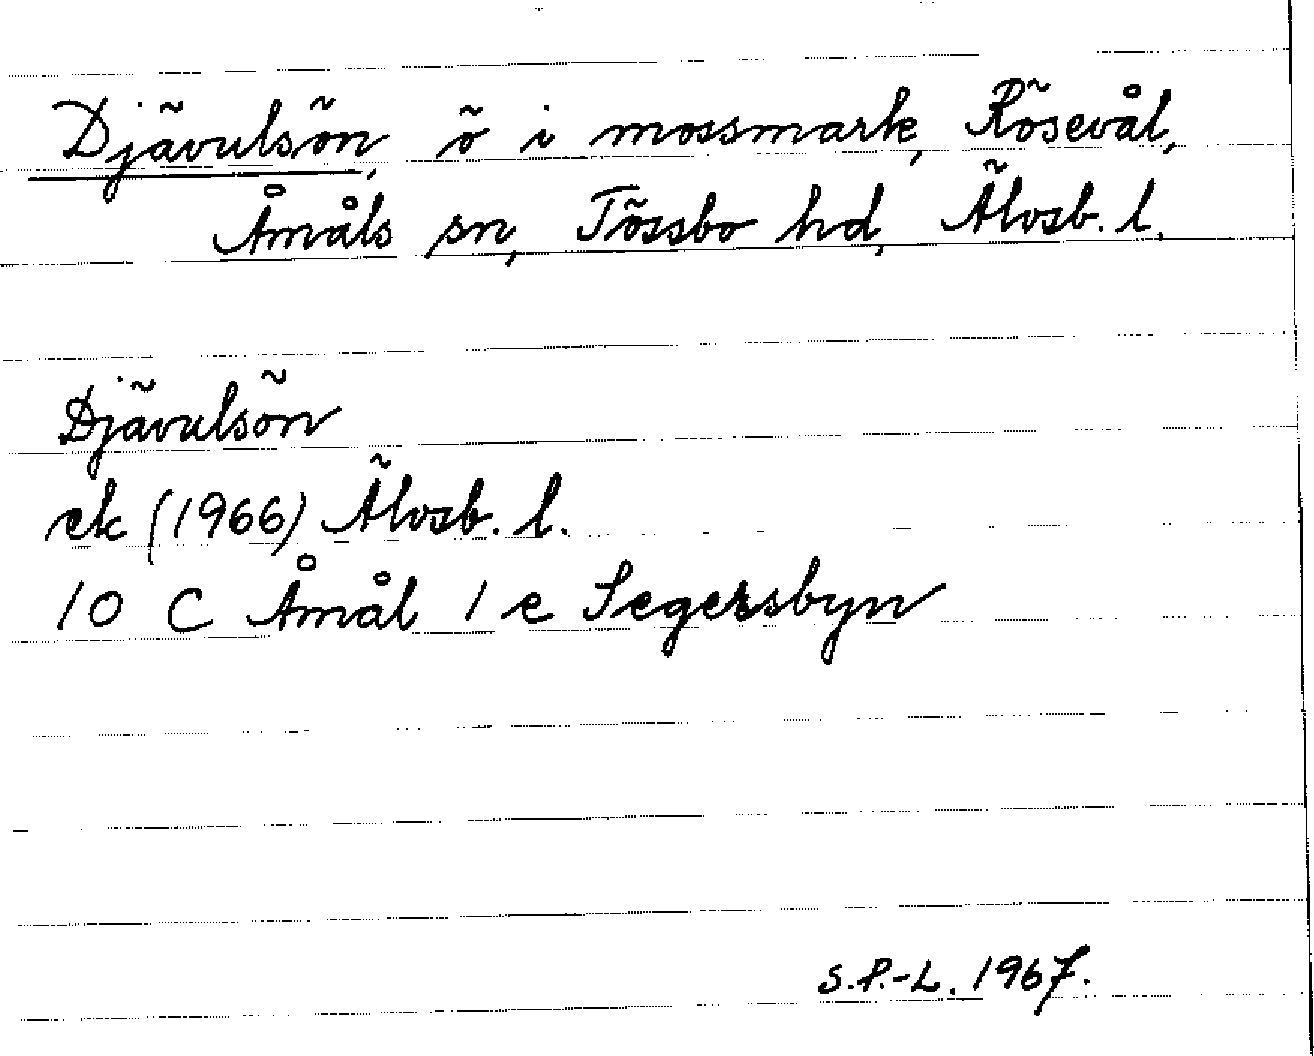 Djävulsön, ö i mossmark, Rösevål,
Åmåls sn, Tössbo hd, Älvsb. l.
Djävulsön
ek (1966) Älvsb. l.
10 C Åmål 1 e Segersbyn
S.P.-L. 1967.